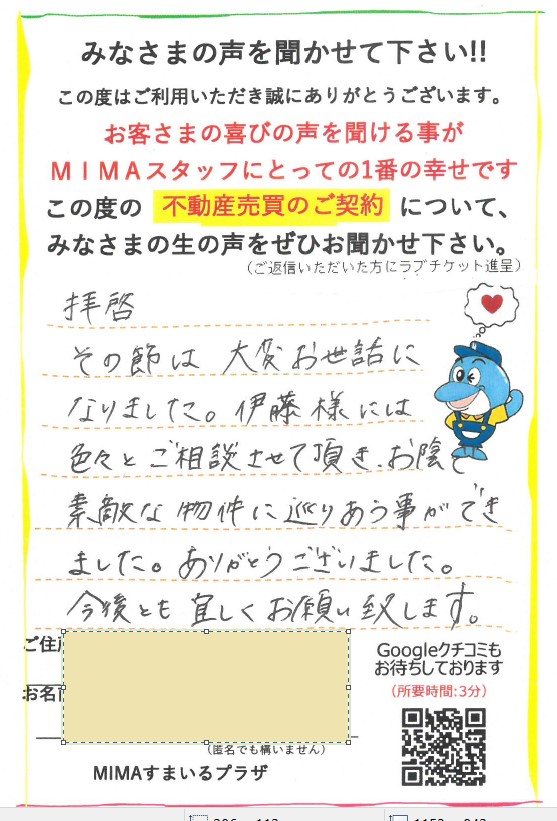 みなさまの声を聞かせて下さい!!
この度はご利用いただき誠にありがとうございます。
お客さまの喜びの声を聞ける事が
MIMAスタッフにとっての1番の幸せです
この度の 不動産売買のご契約 について、
みなさまの生の声をぜひお聞かせ下さい。
(ご返信いただいた方にラブチケット進呈)
拝啓
その節は 大変お世話に
なりました。伊藤様には
色々とご相談させて頂き、お陰で
素敵な物件に巡りあう事ができ
ました。ありがとうございました。
今後とも宜しくお願い致します。
ご住
お名
(匿名でも構いません)
MIMAすまいるプラザ
Googleクチコミも
お待ちしております
(所要時間:3分)